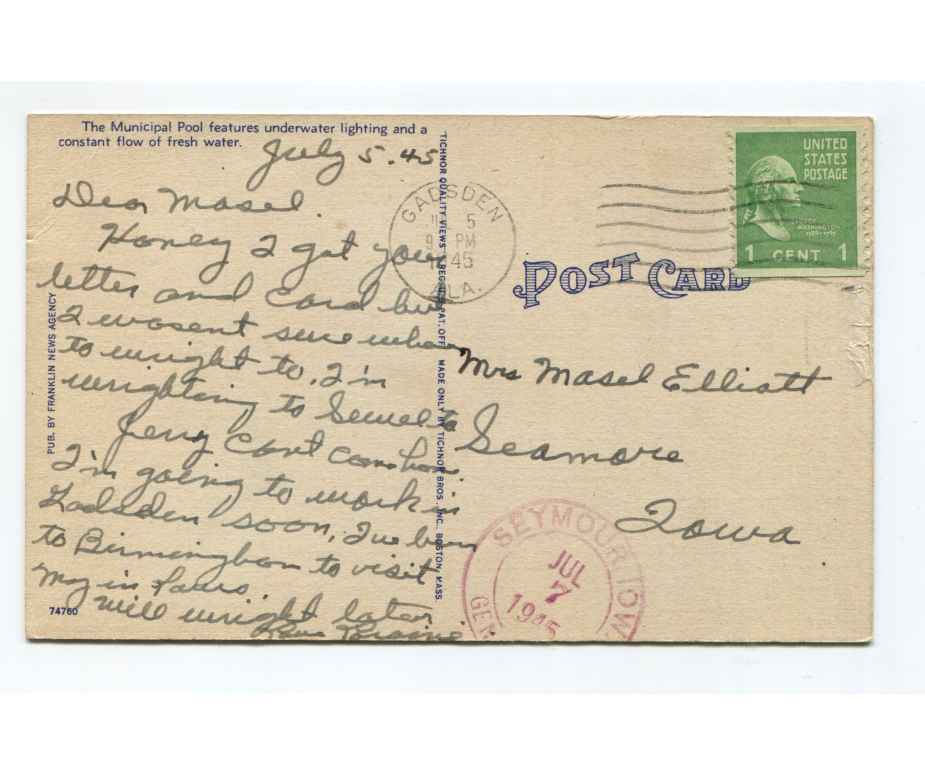 The Municipal Pool features underwater lighting and a
constant flow of fresh water.
July 5. 45
Dear Masel.
Honey I got your
letter and card but
I wasent sure where
to wright to, I'm
wrighting to Semel to
Jerry Cant Com home
I'm going to work in
Gadsden soon, I've been
to Birmingham to visit
my in laws.
will wright later
Love
PUB. BY FRANKLIN NEWS AGENCY
74760
TICHNOR QUALITY VIEWS REG. U. S. PAT. OFF. MADE ONLY BY TICHNOR BROS., INC., BOSTON, MASS.
GADSDEN
JUL 5
9 PM
1945
ALA.
UNITED
STATES
POSTAGE
WASHINGTON
1 CENT 1
POST CARD
Mrs Masel Elliott
Seamore
Iowa
SEYMOUR IOW
JUL
7
1945
GEN